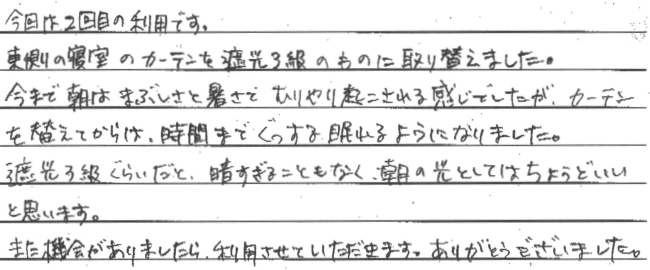 今回は2回目の利用です。
東側の寝室のカーテンを遮光3級のものに取り替えました。
今まで朝はまぶしさと暑さでむりやり起こされる感じでしたが、カーテン
を替えてからは、時間までぐっする眠れるようになりました。
遮光3級ぐらいだと、暗すぎることもなく、朝の光としてはちょうどいい
と思います。
また機会がありましたら、利用させていただきます。ありがとうございました。